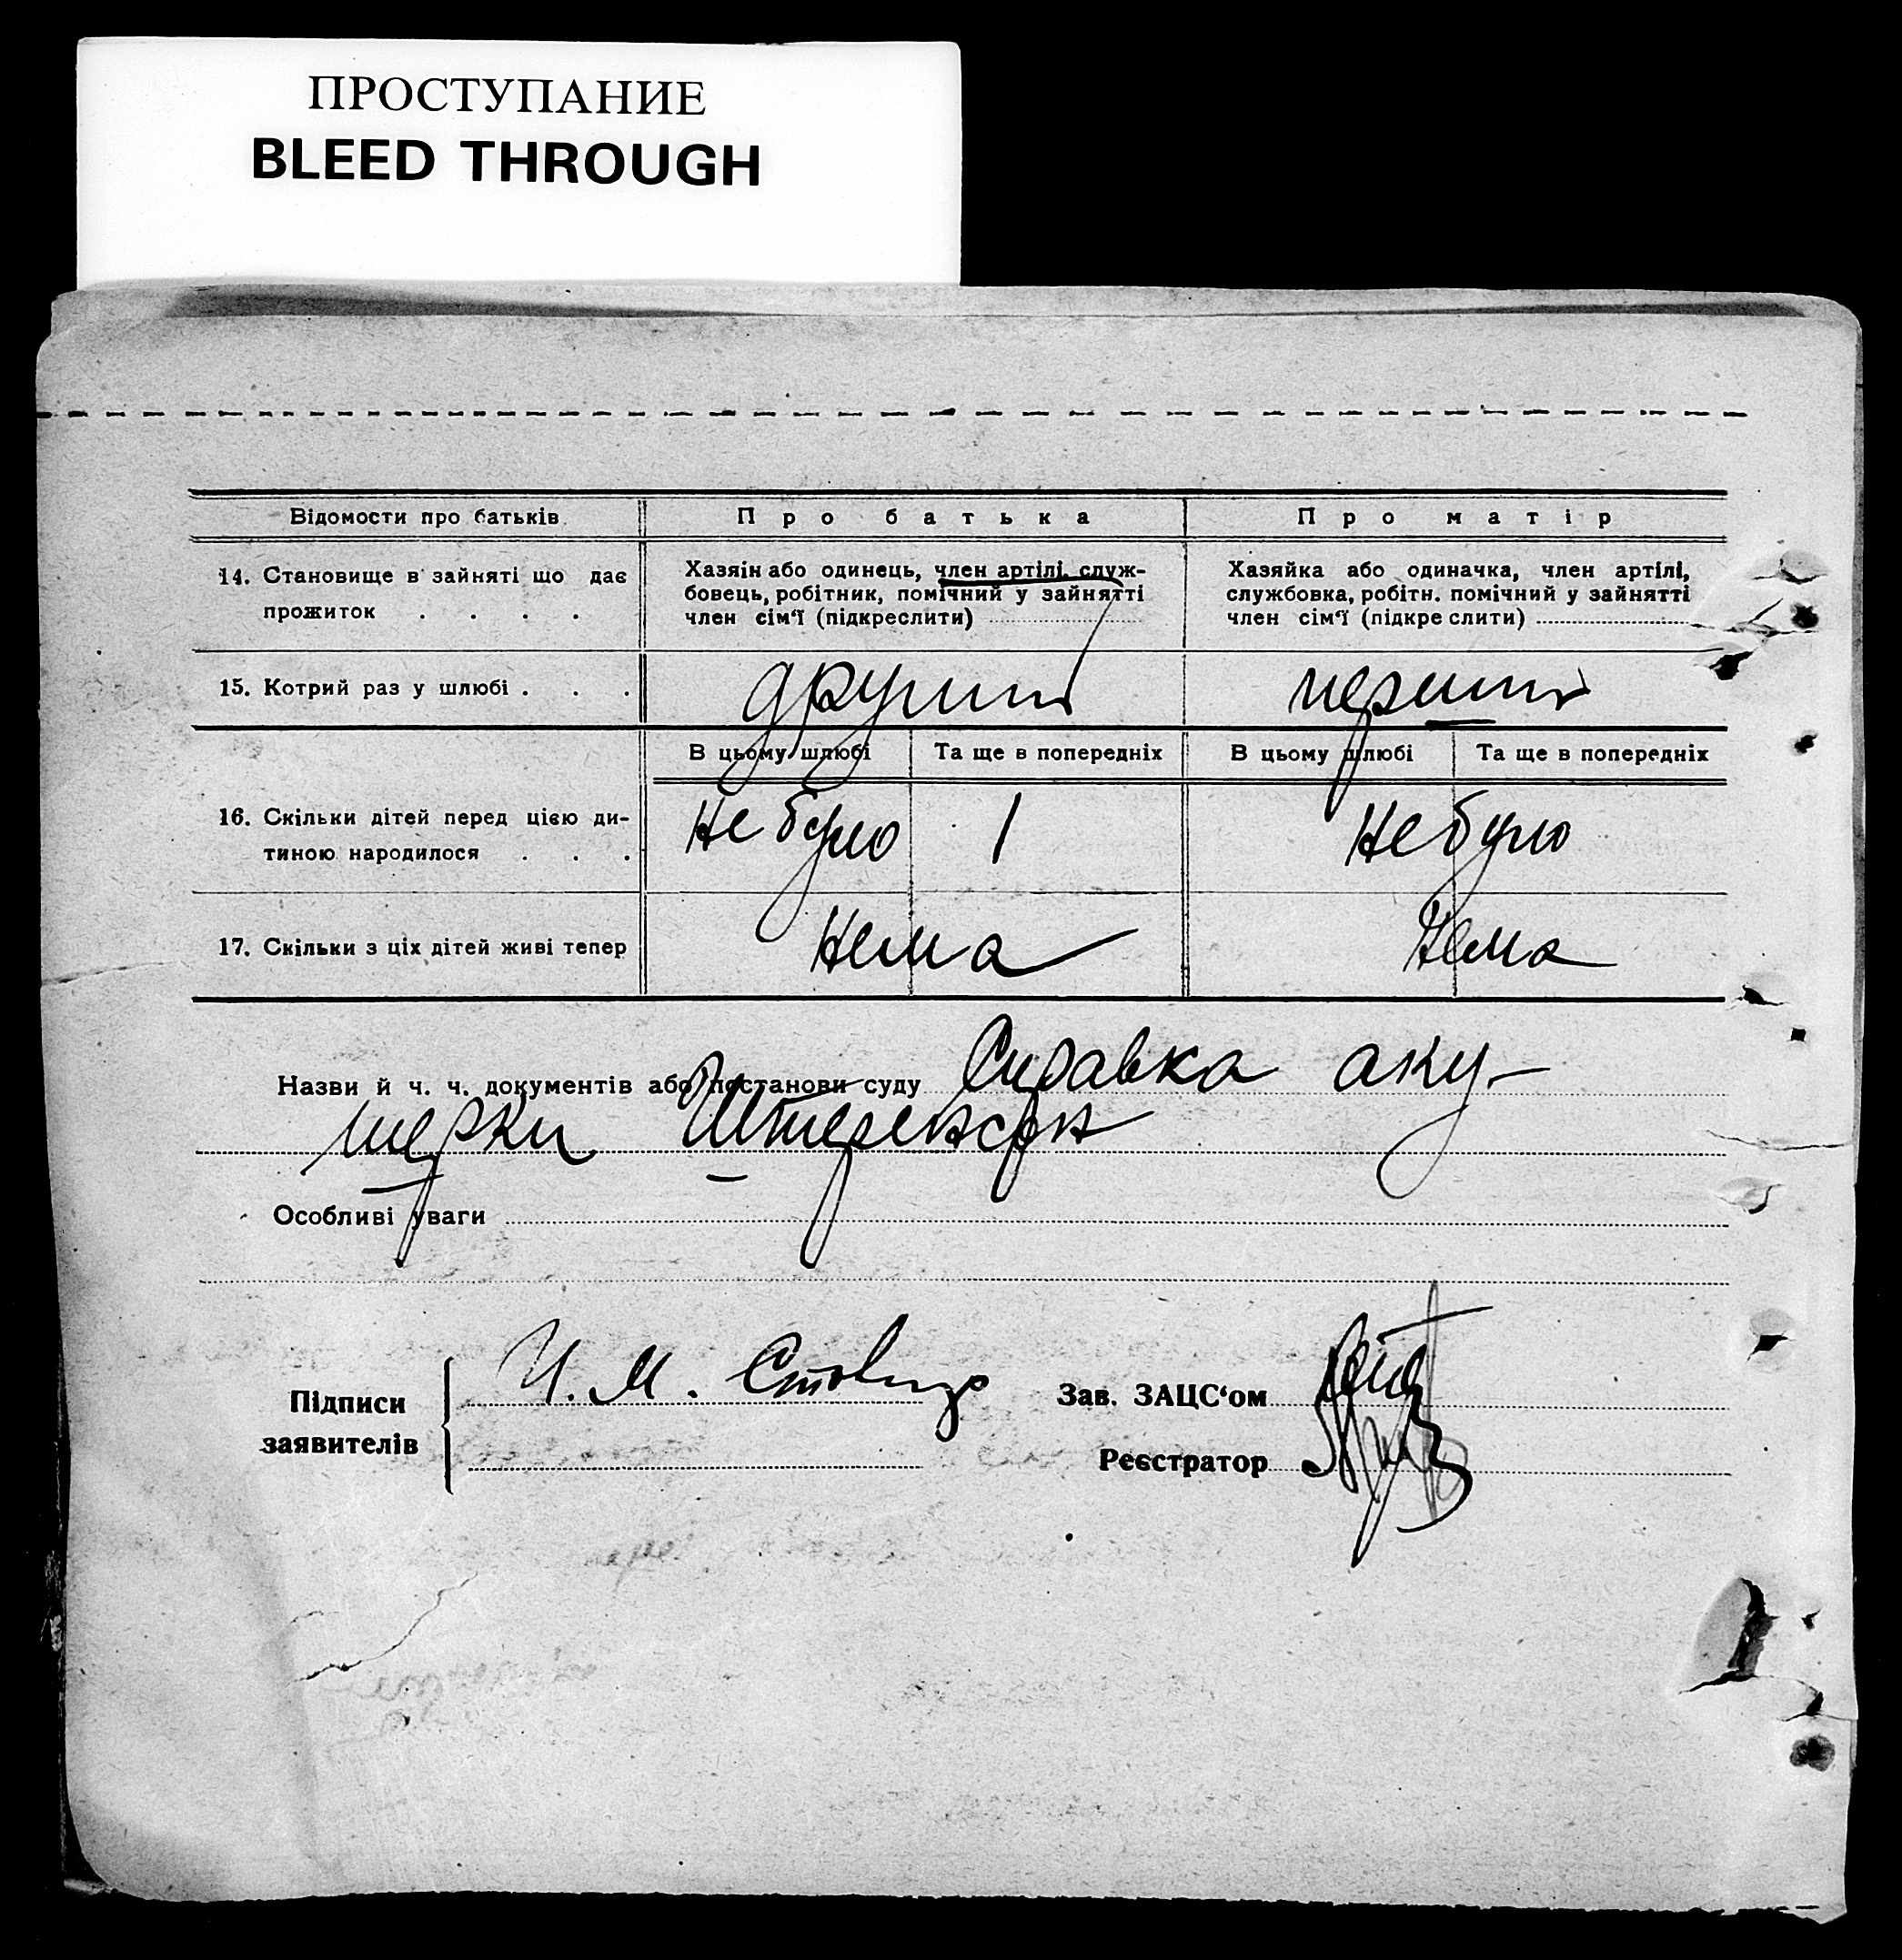 ПРОСТУПАНИЕ
BLEED THROUGH
Відомости про батьків. Про батька Про матір
14. Становище в зайняті що дає прожиток . . . .
Хазяїн або одинець, член артілі, служ-
бовець, робітник, помічний у зайнятті
член сім'ї (підкреслити)
Хазяйка або одиначка, член артілі,
службовка, робітн. помічний у зайнятті
член сім'ї (підкреслити)
15. Котрий раз у шлюбі . . . другий перший
В цьому шлюбі Та ще в попередніх В цьому шлюбі Та ще в попередніх
16. Скільки дітей перед цією ди-
тиною народилося . . . Не було 1 Не було
17. Скільки з ціх дітей живі тепер Нема Нема
Назви й ч. ч. документів або постанови суду Справка аку-
шерки
Особливі уваги
Підписи
заявителів
И. М.
Зав. ЗАЦС'ом
Реєстратор